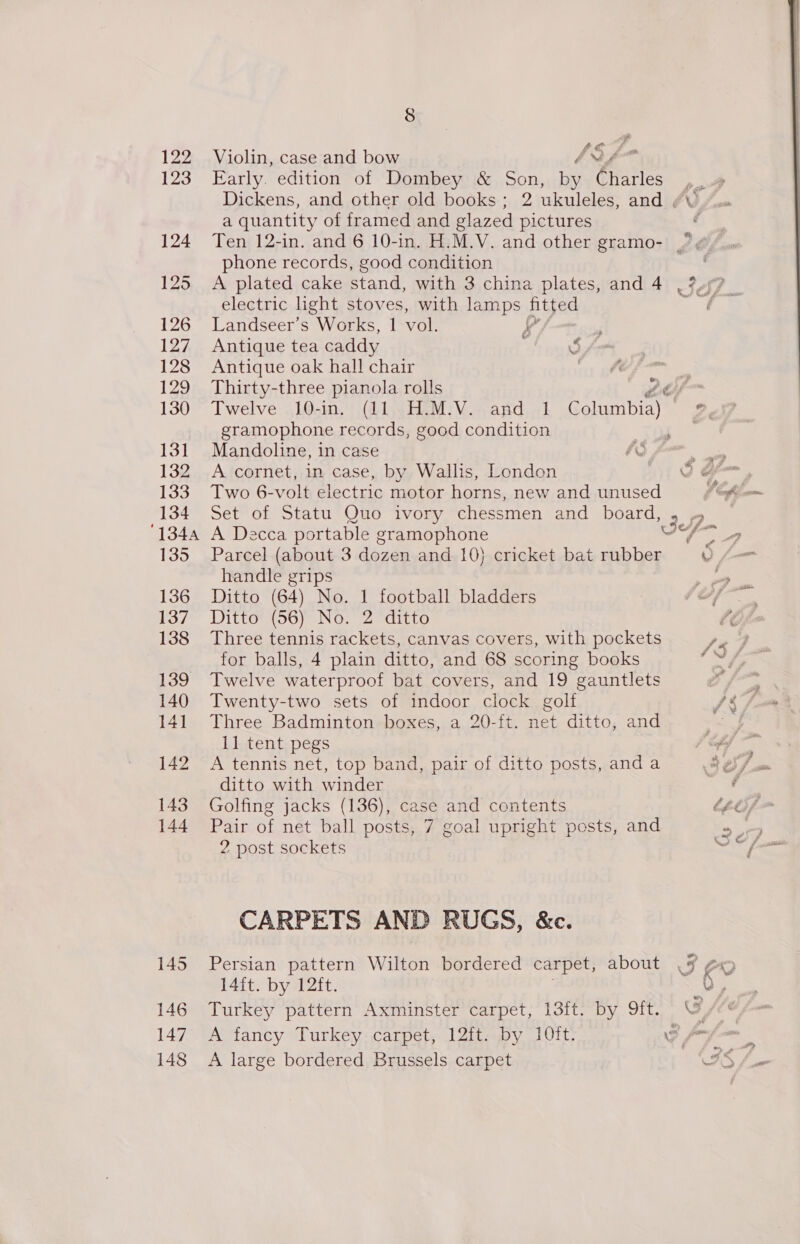 8
122 Violin, case and bow 15/-
123 Early edition of Dombey & Son, by Charles
Dickens, and other old books; 2 ukuleles, and
a quantity of framed and glazed pictures
124 Ten 12-in. and 6 10-in. H.M.V. and other gramo-
phone records, good condition
125 A plated cake stand, with 3 china plates, and 4
electric light stoves, with lamps fitted
126 Landseer's Works, 1 vol.
127 Antique tea caddy 5/-
128 Antique oak hall chair
129 Thirty-three pianola rolls
130 Twelve 10-in. (11 H.M.V. and 1 Columbia)
gramophone records, good condition
131 Mandoline, in case
132 A cornet, in case, by Wallis, London
133 Two 6-volt electric motor horns, new and unused
134 Set of Statu Quo ivory chessmen and board,
134A A Decca portable gramophone
135 Parcel (about 3 dozen and 10) cricket bat rubber
handle grips
136 Ditto (64) No. 1 football bladders
137 Ditto (56) No. 2 ditto
138 Three tennis rackets, canvas covers, with pockets
for balls, 4 plain ditto, and 68 scoring books
139 Twelve waterproof bat covers, and 19 gauntlets
140 Twenty-two sets of indoor clock golf
141 Three Badminton boxes, a 20-ft. net ditto, and
11 tent pegs
142 A tennis net, top band, pair of ditto posts, and a
ditto with winder
143 Golfing jacks (136), case and contents
144 Pair of net ball posts, 7 goal upright posts, and
2 post sockets
CARPETS AND RUGS, &c.
145 Persian pattern Wilton bordered carpet, about
14ft. by 12ft.
146 Turkey pattern Axminster carpet, 13ft. by 9ft.
147 A fancy Turkey carpet, 12ft. by 10ft.
148 A large bordered Brussels carpet